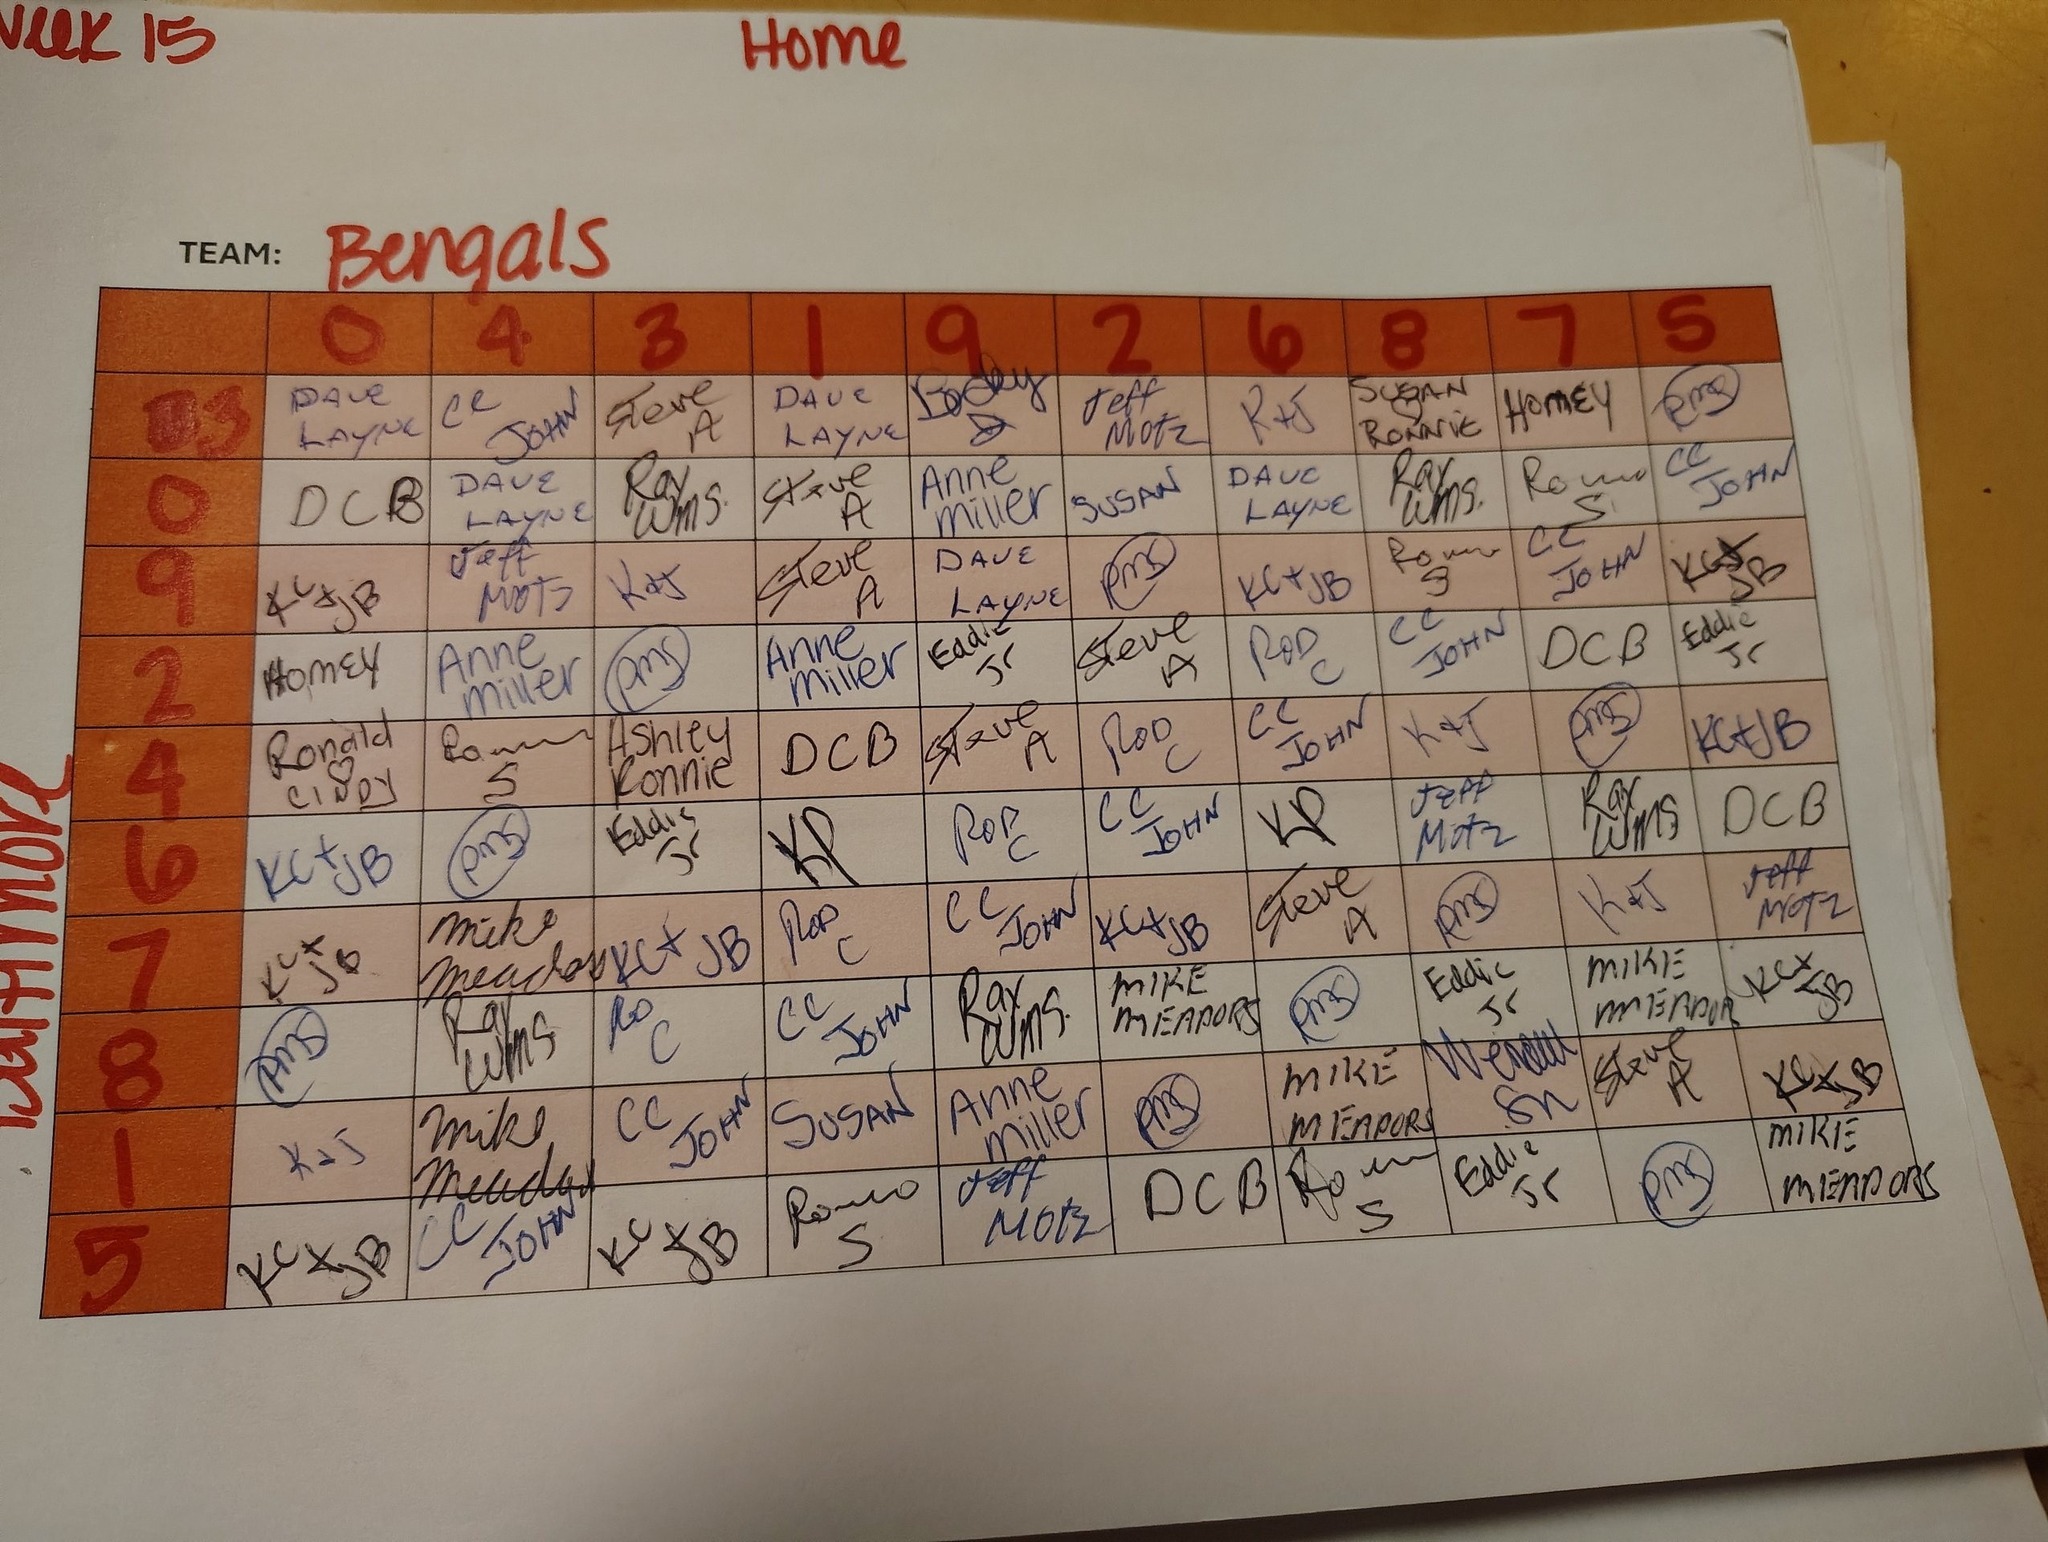 Week 15
Home
TEAM: Bengals
Baltimore
0 4 3 1 9 2 6 8 7 5
3 DAVE LAYNE CC JOHN Steve A DAVE LAYNE Jeff Motz K+J SUSAN RONNIE HOMEY PMS
0 DCB DAVE LAYNE Ray Wms. Steve A Anne Miller SUSAN DAVE LAYNE Ray Wms. Romo S CC JOHN
9 KC+JB Jeff Motz K+J Steve A DAVE LAYNE PMS KC+JB Romo S CC JOHN KC+JB
2 HOMEY Anne Miller PMS Anne Miller Eddie Jr Steve A ROD C CC JOHN DCB Eddie Jr
4 Ronald CINDY Romo S Ashley Ronnie DCB Steve A ROD C CC JOHN K+J PMS KC+JB
6 KC+JB PMS Eddie Jr KP ROD C CC JOHN KP Jeff Motz Ray Wms DCB
7 KC+JB Mike Meadows KC+JB ROD C CC JOHN KC+JB Steve A PMS K+J Jeff Motz
8 PMS Ray Wms. RO C CC JOHN Ray Wms. MIKE MEADORS PMS Eddie Jr MIKE MEADOR KC+JB
1 K+J Mike Meadows CC JOHN SUSAN Anne Miller PMS MIKE MEADORS Steve A KC+JB
5 KC+JB CC JOHN KC+JB Romo S Jeff Motz DCB Romo S Eddie Jr PMS MIKE MEADORS